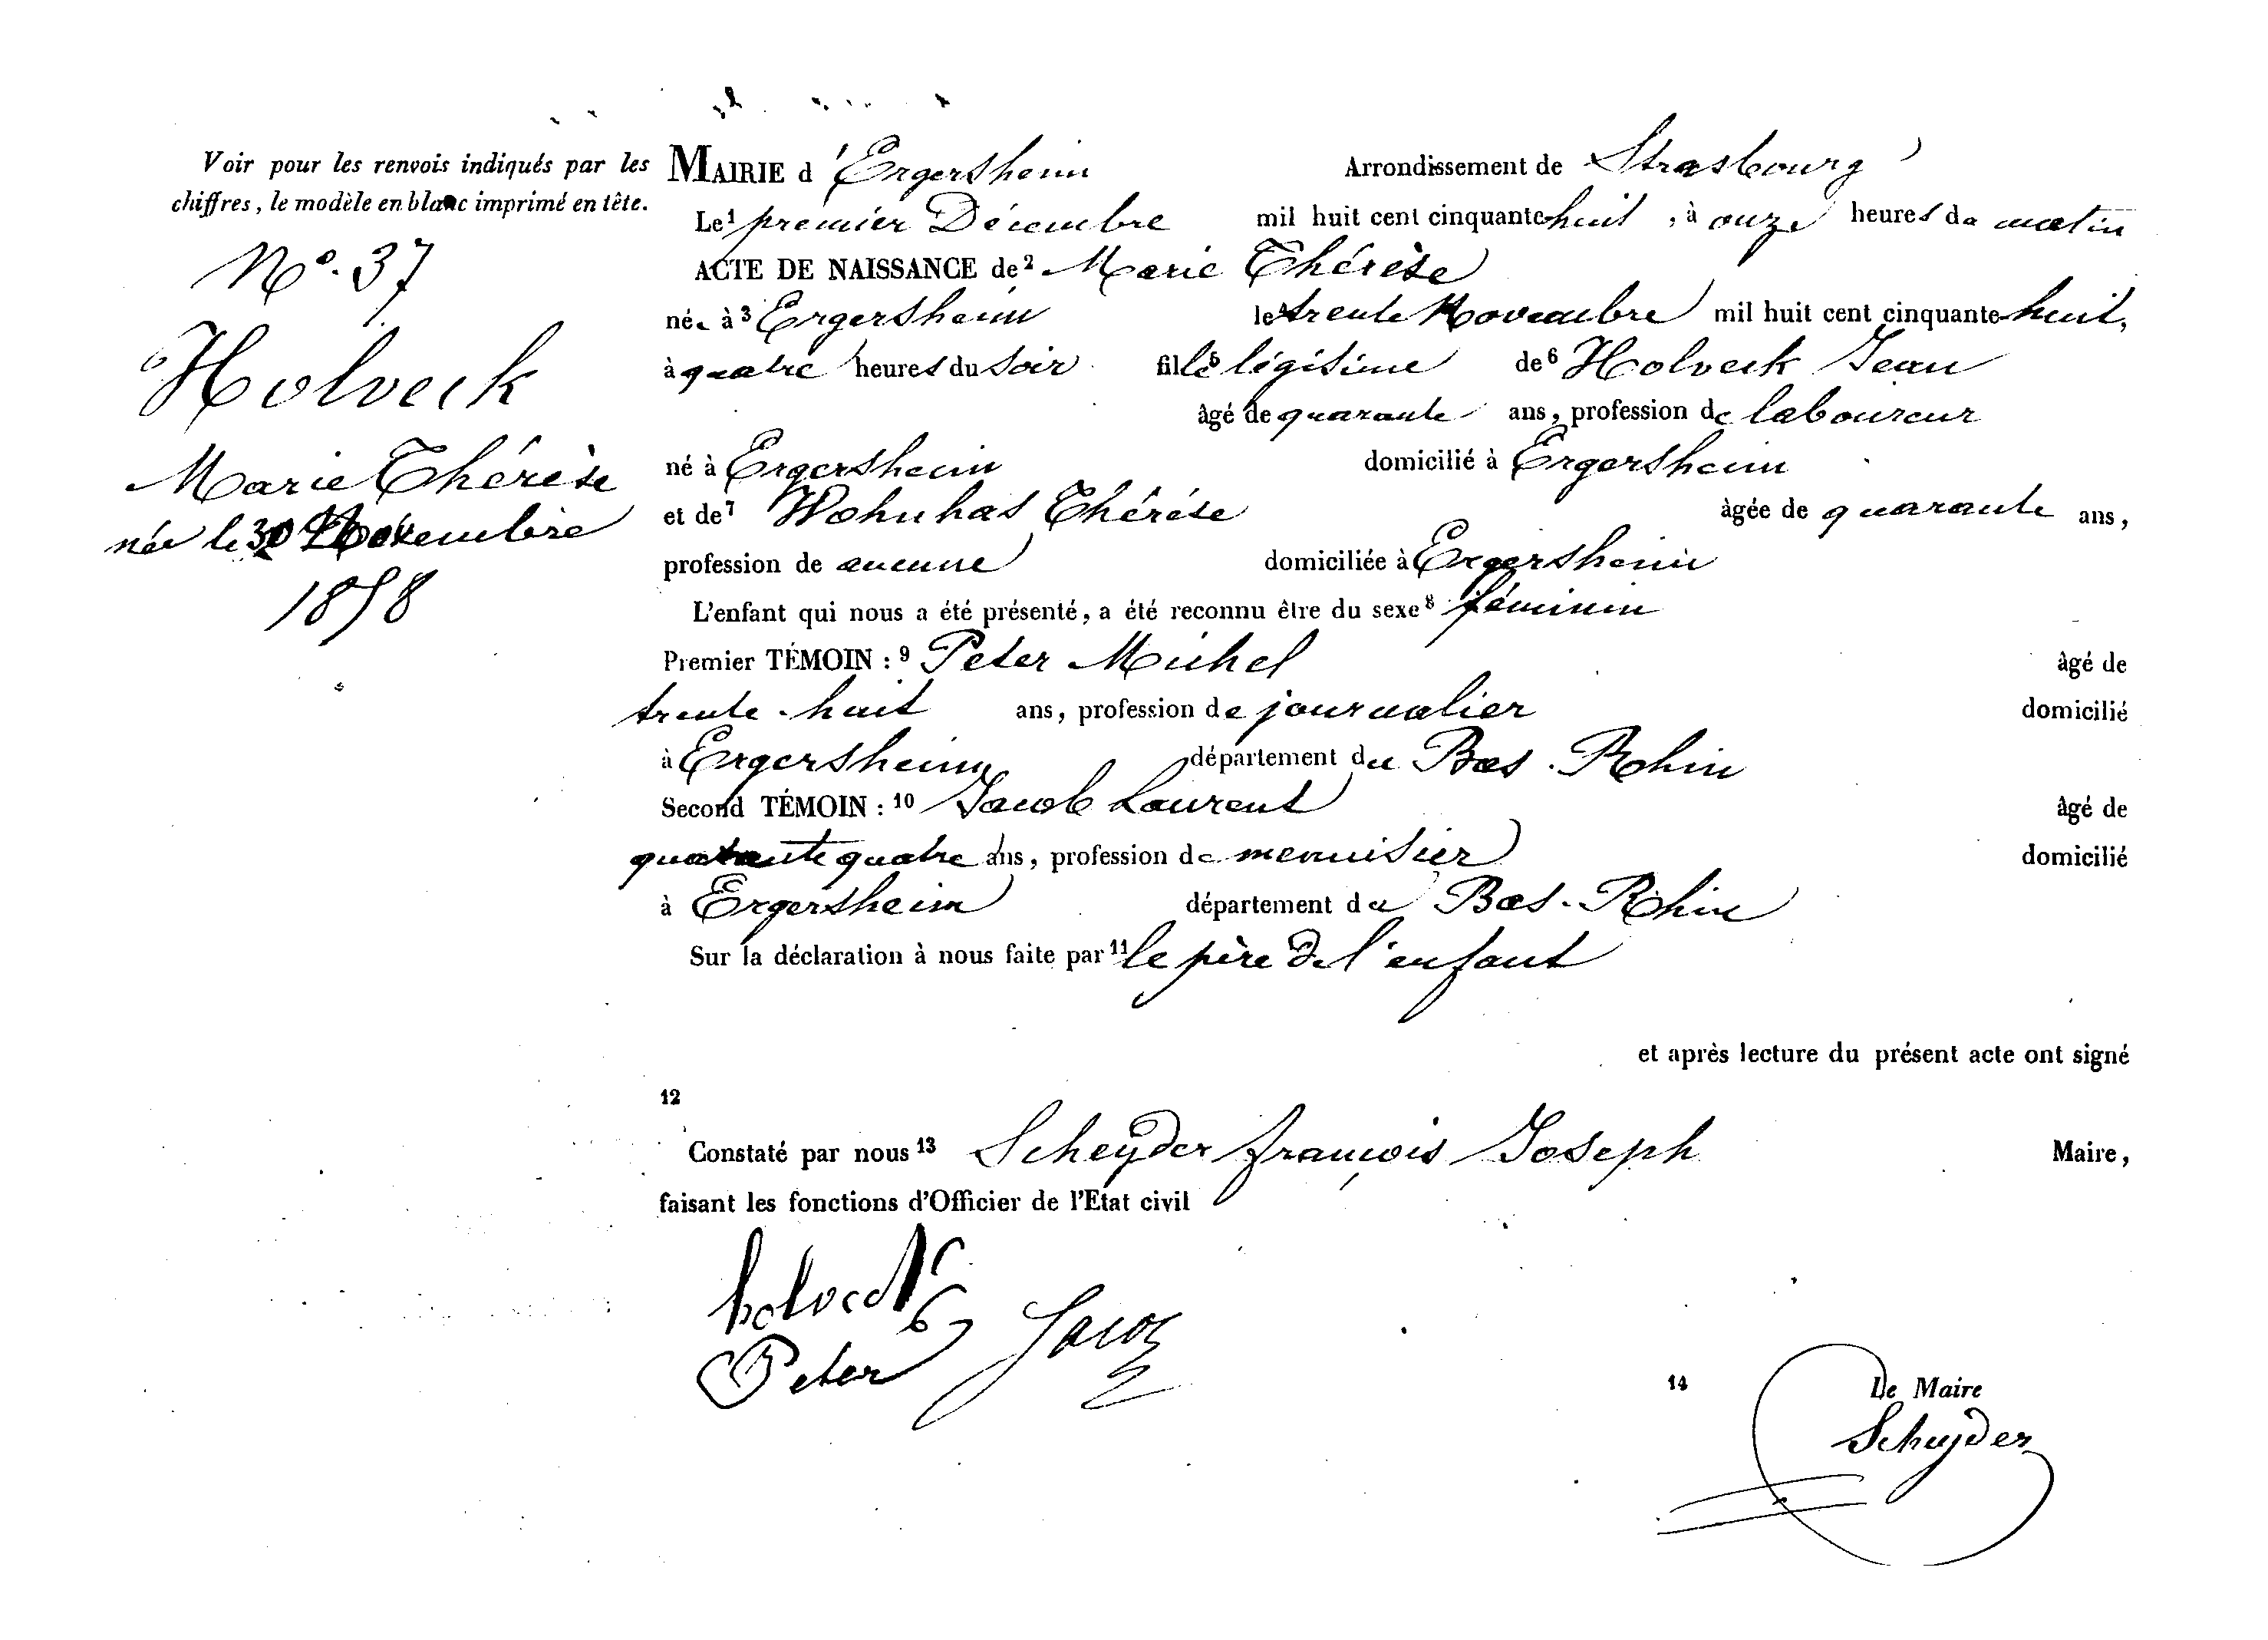 Voir pour les renvois indiqués par les
chiffres, le modèle en blanc imprimé en tête.
Nº. 37
Holveck
Marie Thérèse
née le 30 Novembre
1858
MAIRIE d'Ergersheim Arrondissement de Strasbourg
Le 1 premier Décembre mil huit cent cinquante huit, à onze heures du matin
ACTE DE NAISSANCE de 2 Marie Thérèse
née à 3 Ergersheim le 4 trente Novembre mil huit cent cinquante huit,
à quatre heures du soir fille 5 légitime de 6 Holveck Jean
âgé de quarante ans, profession de laboureur
né à Ergersheim domicilié à Ergersheim
et de 7 Wohnhas Thérèse âgée de quarante ans,
profession de aucune domiciliée à Ergersheim
L'enfant qui nous a été présenté, a été reconnu être du sexe 8 féminin
Premier TÉMOIN : 9 Peter Michel âgé de
trente-huit ans, profession de journalier domicilié
à Ergersheim département du Bas-Rhin
Second TÉMOIN : 10 Jacob Laurent âgé de
quarante quatre ans, profession de menuisier domicilié
à Ergersheim département du Bas-Rhin
Sur la déclaration à nous faite par 11 le père de l'enfant
et après lecture du présent acte ont signé
12
Constaté par nous 13 Scheÿder françois Joseph Maire,
faisant les fonctions d'Officier de l'Etat civil
holveck
Peter Jacob
14 Le Maire
Scheyder